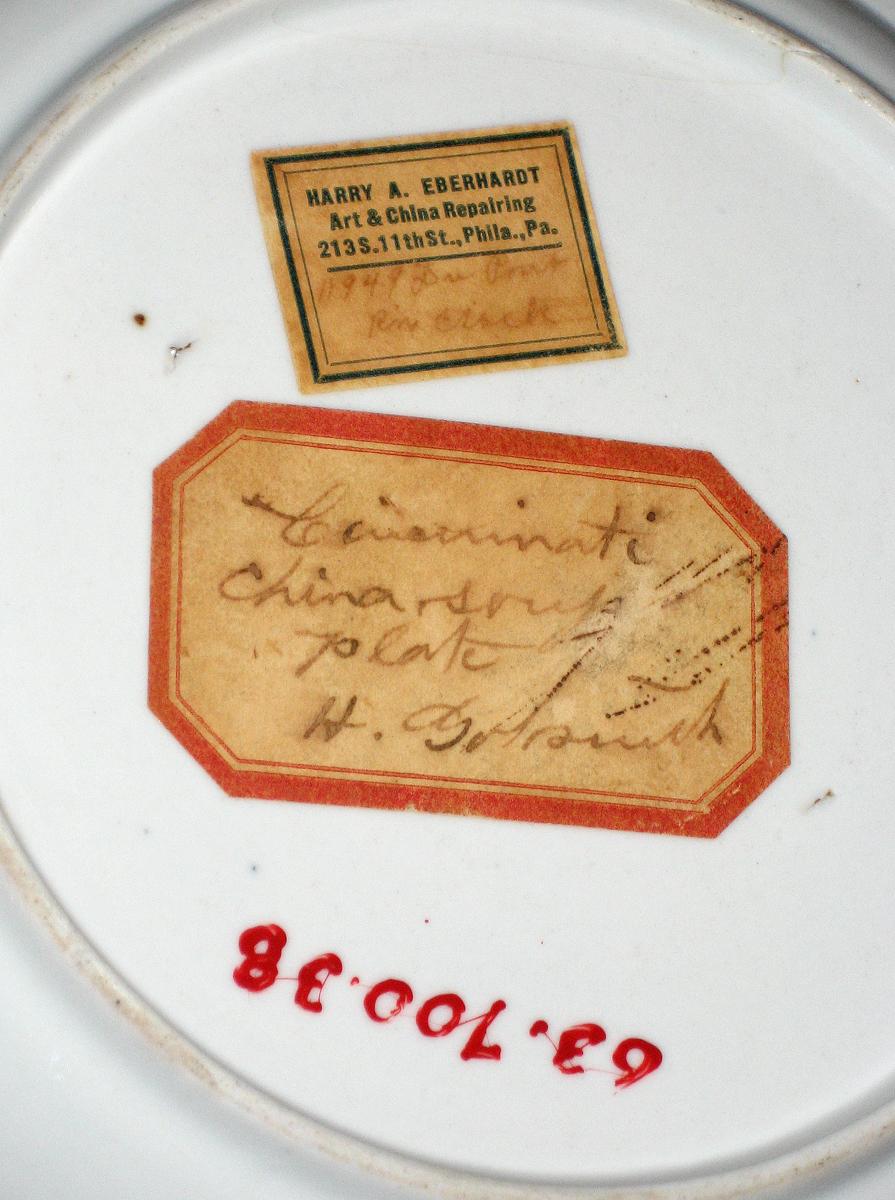 HARRY A. EBERHARDT
Art & China Repairing
213 S. 11th St., Phila., Pa.
Du Pont
Rim Crack
Cincinnati
China soup
plate
63.700.38